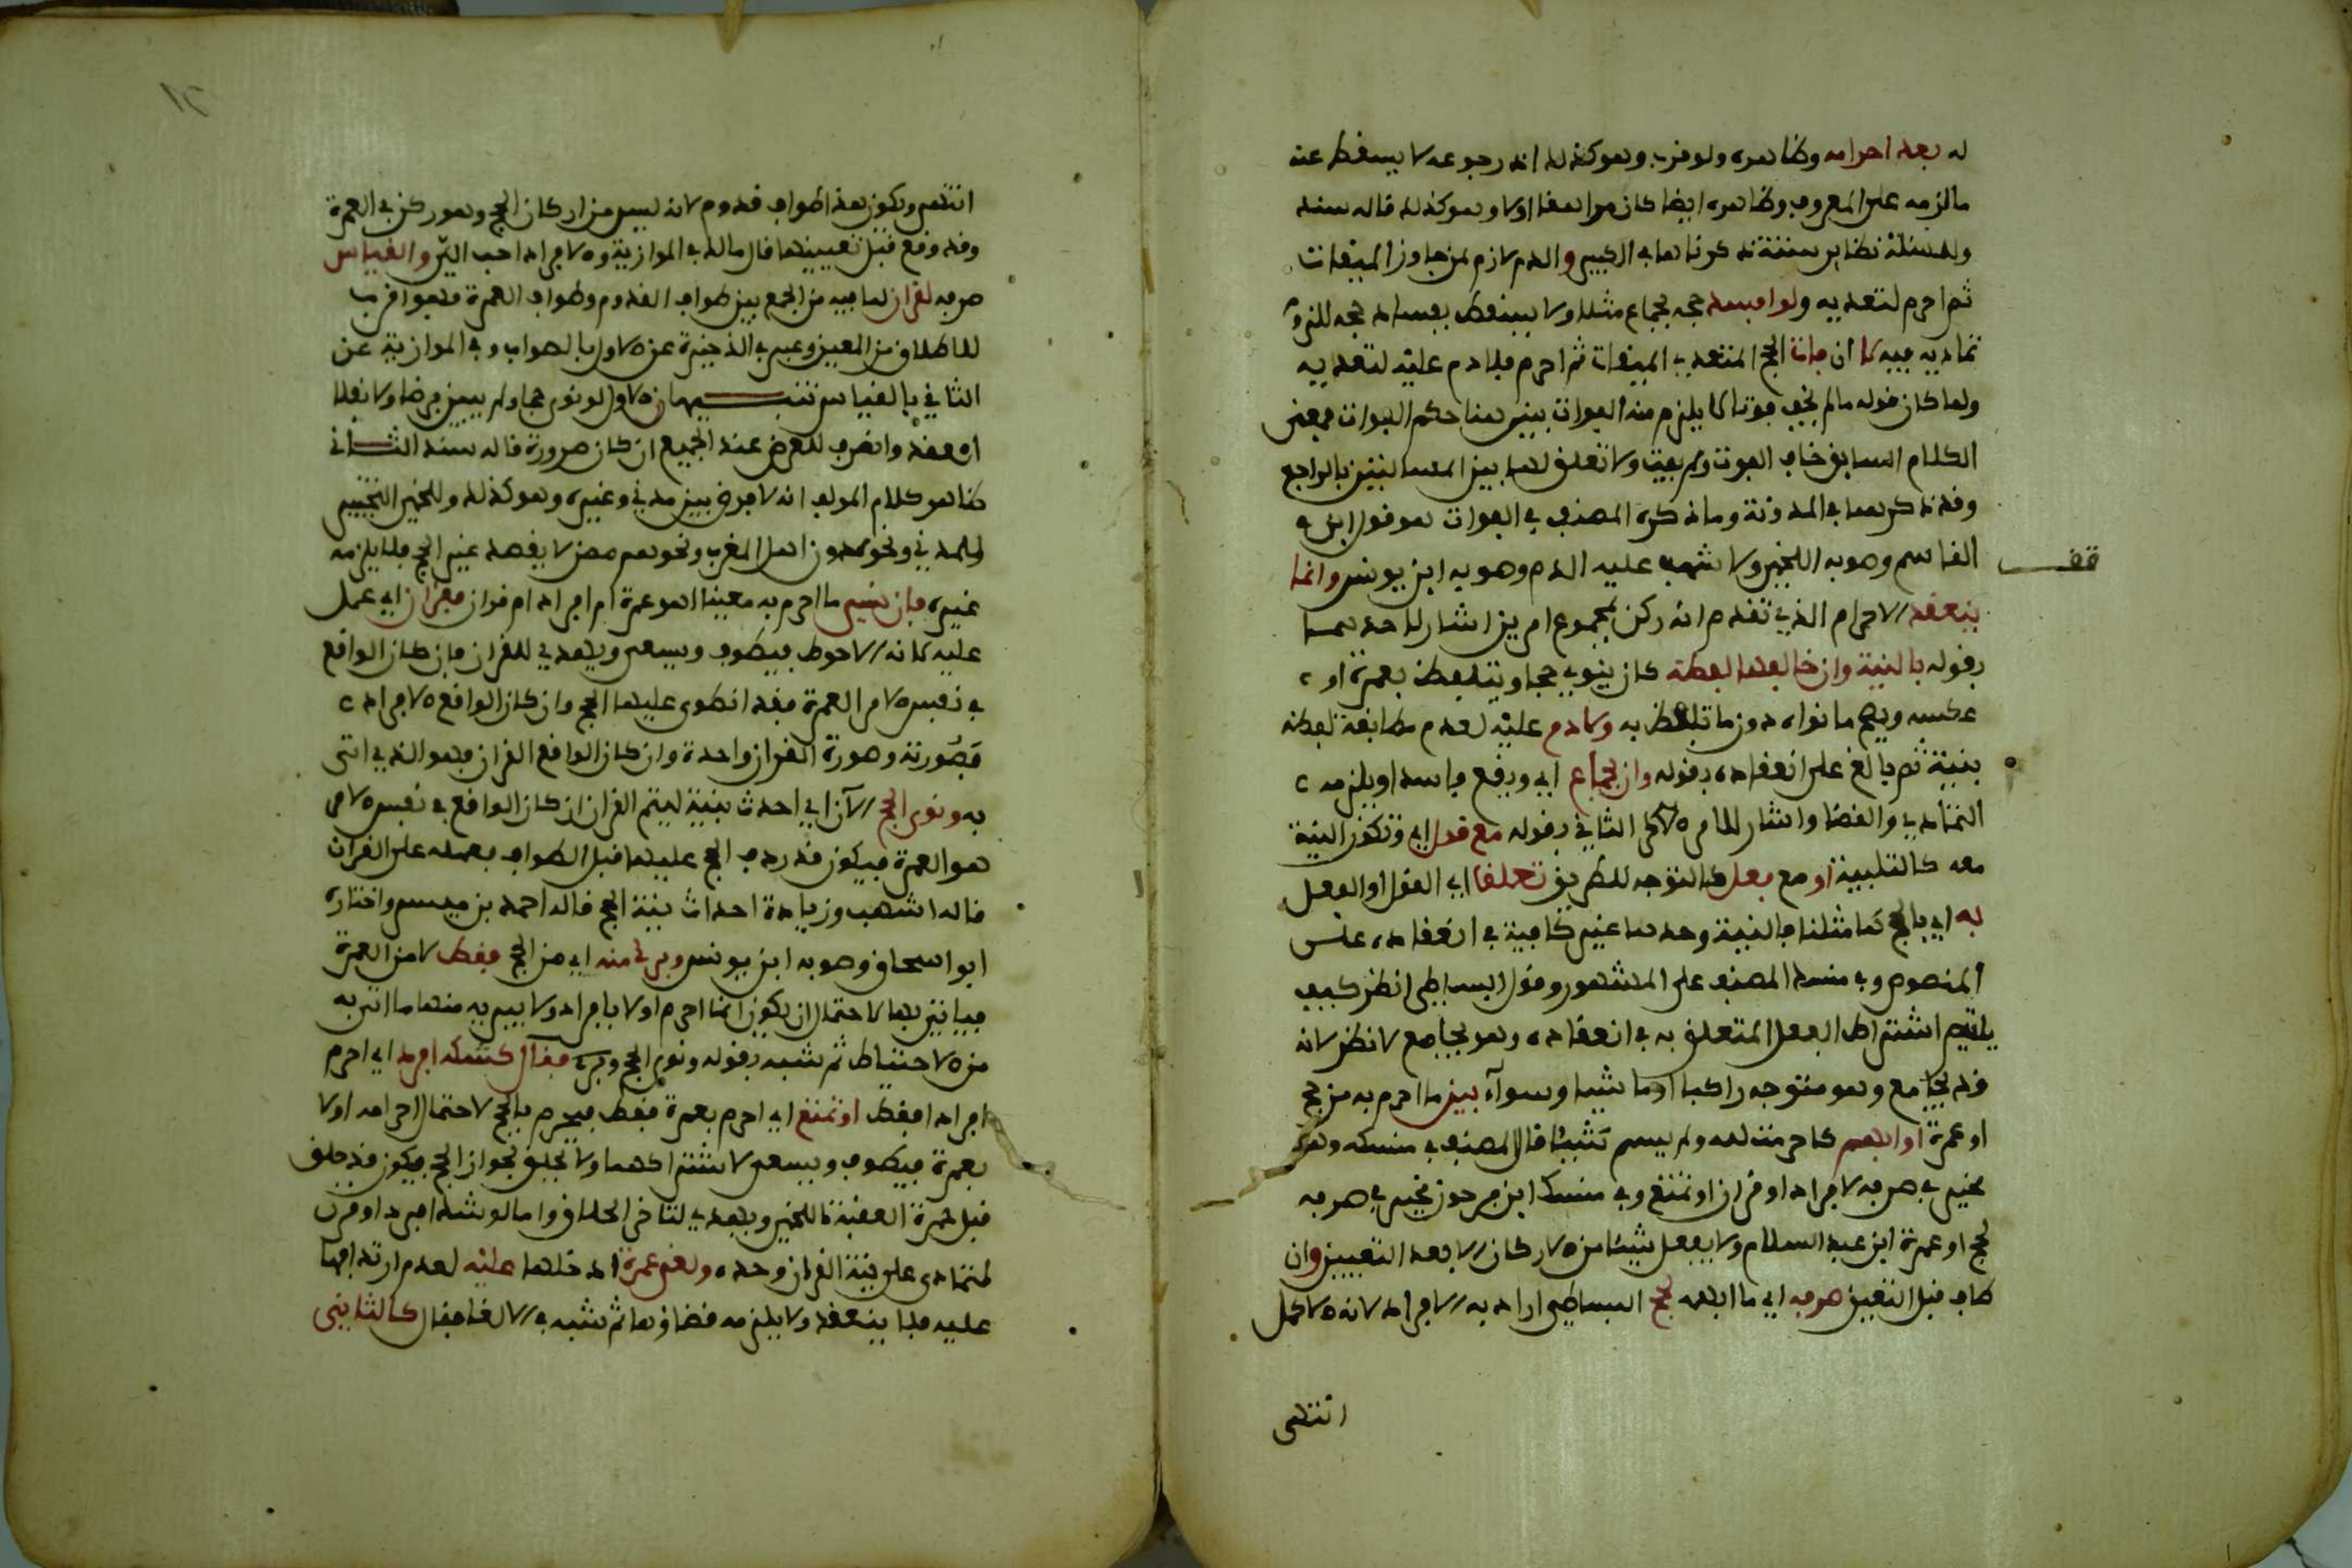 له بعد احرامه وظاهره ولو قرب وهو كذلك اذ رجوعه لا يسقط عنه
ما لزمه على المعروف وظاهره ايضا كان مراهقا اولا وهو كذلك قاله سند
ولهسئلة نظاير ستة ذكرناها في الكبير والدم لازم لمن جاوز الميقات
ثم احرم لتعديه ولو افسد حجه بجماع مثلا ولا يسقط بفساد حجه للزوم
تماديه فيه لا ان فاته الحج المتعدي الميقات ثم احرم فلا دم عليه لتعديه
ولما كان قوله ما لم يخف فوتا لا يلزم منه الفوات بين هنا حكم الفوات فمعنى
الكلام السابق خاف الفوت ولم يفت ولا تعلق لها بين المسالتين بالراجع
وقد ذكرهما في المدونة وما ذكره المصنف في الفوات هو قول ابن
القاسم وصوبه اللخمي ولا شهب عليه الدم وصوبه ابن يونس وانما
ينعقد الاحرام الذي تقدم انه ركن بمجموع امرين اشار لاحدهما
بقوله بالنية وان خالفها لفظه كان ينوي حجا ويتلفظ بعمرة او
عكسه ويصح ما نواه دون ما تلفظ به ولا دم عليه لعدم مطابقة لفظه
بنية ثم بالغ على انعقاده بقوله وان بجماع اي ويقع فاسدا ويلزمه
التمادي والقضا واشار للامر الثاني بقوله مع قول اي وتكون النية
معه كالتلبية او مع فعل كالتوجه للطريق تعلقا اي القول او الفعل
به اي بالحج كما مثلنا فالنية وحدها غير كافية في انعقاده على
المنصوص وفي منسك المصنف على المشهور وقول البساطي انظر كيف
يلتيم اشتراط الفعل المتعلق به في انعقاده وهو يجامع لا نظر لانه
قد يجامع وهو متوجه راكبا او ماشيا وسواء بين ما احرم به من حج
او عمرة او ابهم كاحرمت لله ولم يسم شيئا قال المصنف في منسكه وهو
مخير في صرفه لافراد او قران او تمتع وفي منسك ابن فرحون مخير في صرفه
لحج او عمرة ابن عبد السلام ولا يفعل شيئا من الاركان الا بعد التعيين وان
طاف قبل التعيين صرفه اي ما ابهمه لحج البساطي اراد به الافراد لانه الاكمل
انتهى
قف
١٢
انتهى ويكون هذا طواف قدوم لانه ليس من اركان الحج وهو ركن في العمرة
وقد وقع قبل تعيينها قال مالك في الموازية والافراد احب الي والقياس
صرفه لقران لما فيه من الجمع بين طواف القدوم وطواف العمرة فهو اقرب
للاطلاق من المعين وعبر في الذخيرة عن الاول بالصواب وفي الموازية عن
الثاني بالقياس تنبيهان الاول لو نوى حجا ولم يعين فرضا ولا نفلا
انعقد وانصرف للفرض عند الجميع ان كان صرورة قاله سند الثاني
ظاهر كلام المولف انه لا فرق بين مدني وغيره وهو كذلك وللخمي التخيير
للمدني ونحوه دون اهل المغرب ونحوهم ممن لا يقصد غير الحج فلا يلزمه
غيره فان نسي ما احرم به معينا اهو عمرة ام افراد ام قران فقران اي عمل
عليه لانه الاحوط فيطوف ويسعى ويهدي للقران فان كان الواقع
في نفس الامر العمرة فقد انطوى عليها الحج وان كان الواقع الافراد
فصورته وصورة القران واحدة وان كان الواقع القران فهو الذي اتى
به ونوى الحج الآن اي احدث بنية ليتم القران ان كان الواقع في نفس الامر
هو العمرة فيكون قد ردف الحج عليها قبل الطواف فعمله على القران
قاله اشهب وزيادة احداث بنية الحج قاله احمد بن ميسر واختاره
ابو اسحاق وصوبه ابن يونس وبرئ منه اي من الحج فقط لا من العمرة
فياتي بها لاحتمال ان يكون انما احرم اولا بافراد ولا يبريه منها ما اتى به
من الاحتياط ثم شبه بقوله ونوى الحج وبرئ فقال كشكه افرد اي احرم
افرادا فقط او تمتع اي احرم بعمرة فقط فيحرم بالحج لاحتمال احرامه اولا
بعمرة فيطوف ويسعى لاشتراكهما ولا يحلق لجواز الحج فيكون قد حلق
قبل جمرة العقبة للخمي ويهدي لتاخر الحلاق واما لو شك افرد او قرن
لتمادى على نية القران وحده ولغى عمرة ادخلها عليه لعدم ارتدافها
عليه فلا ينعقد ولا يلزمه قضاؤها ثم شبه في الالغا فقال كالثاني